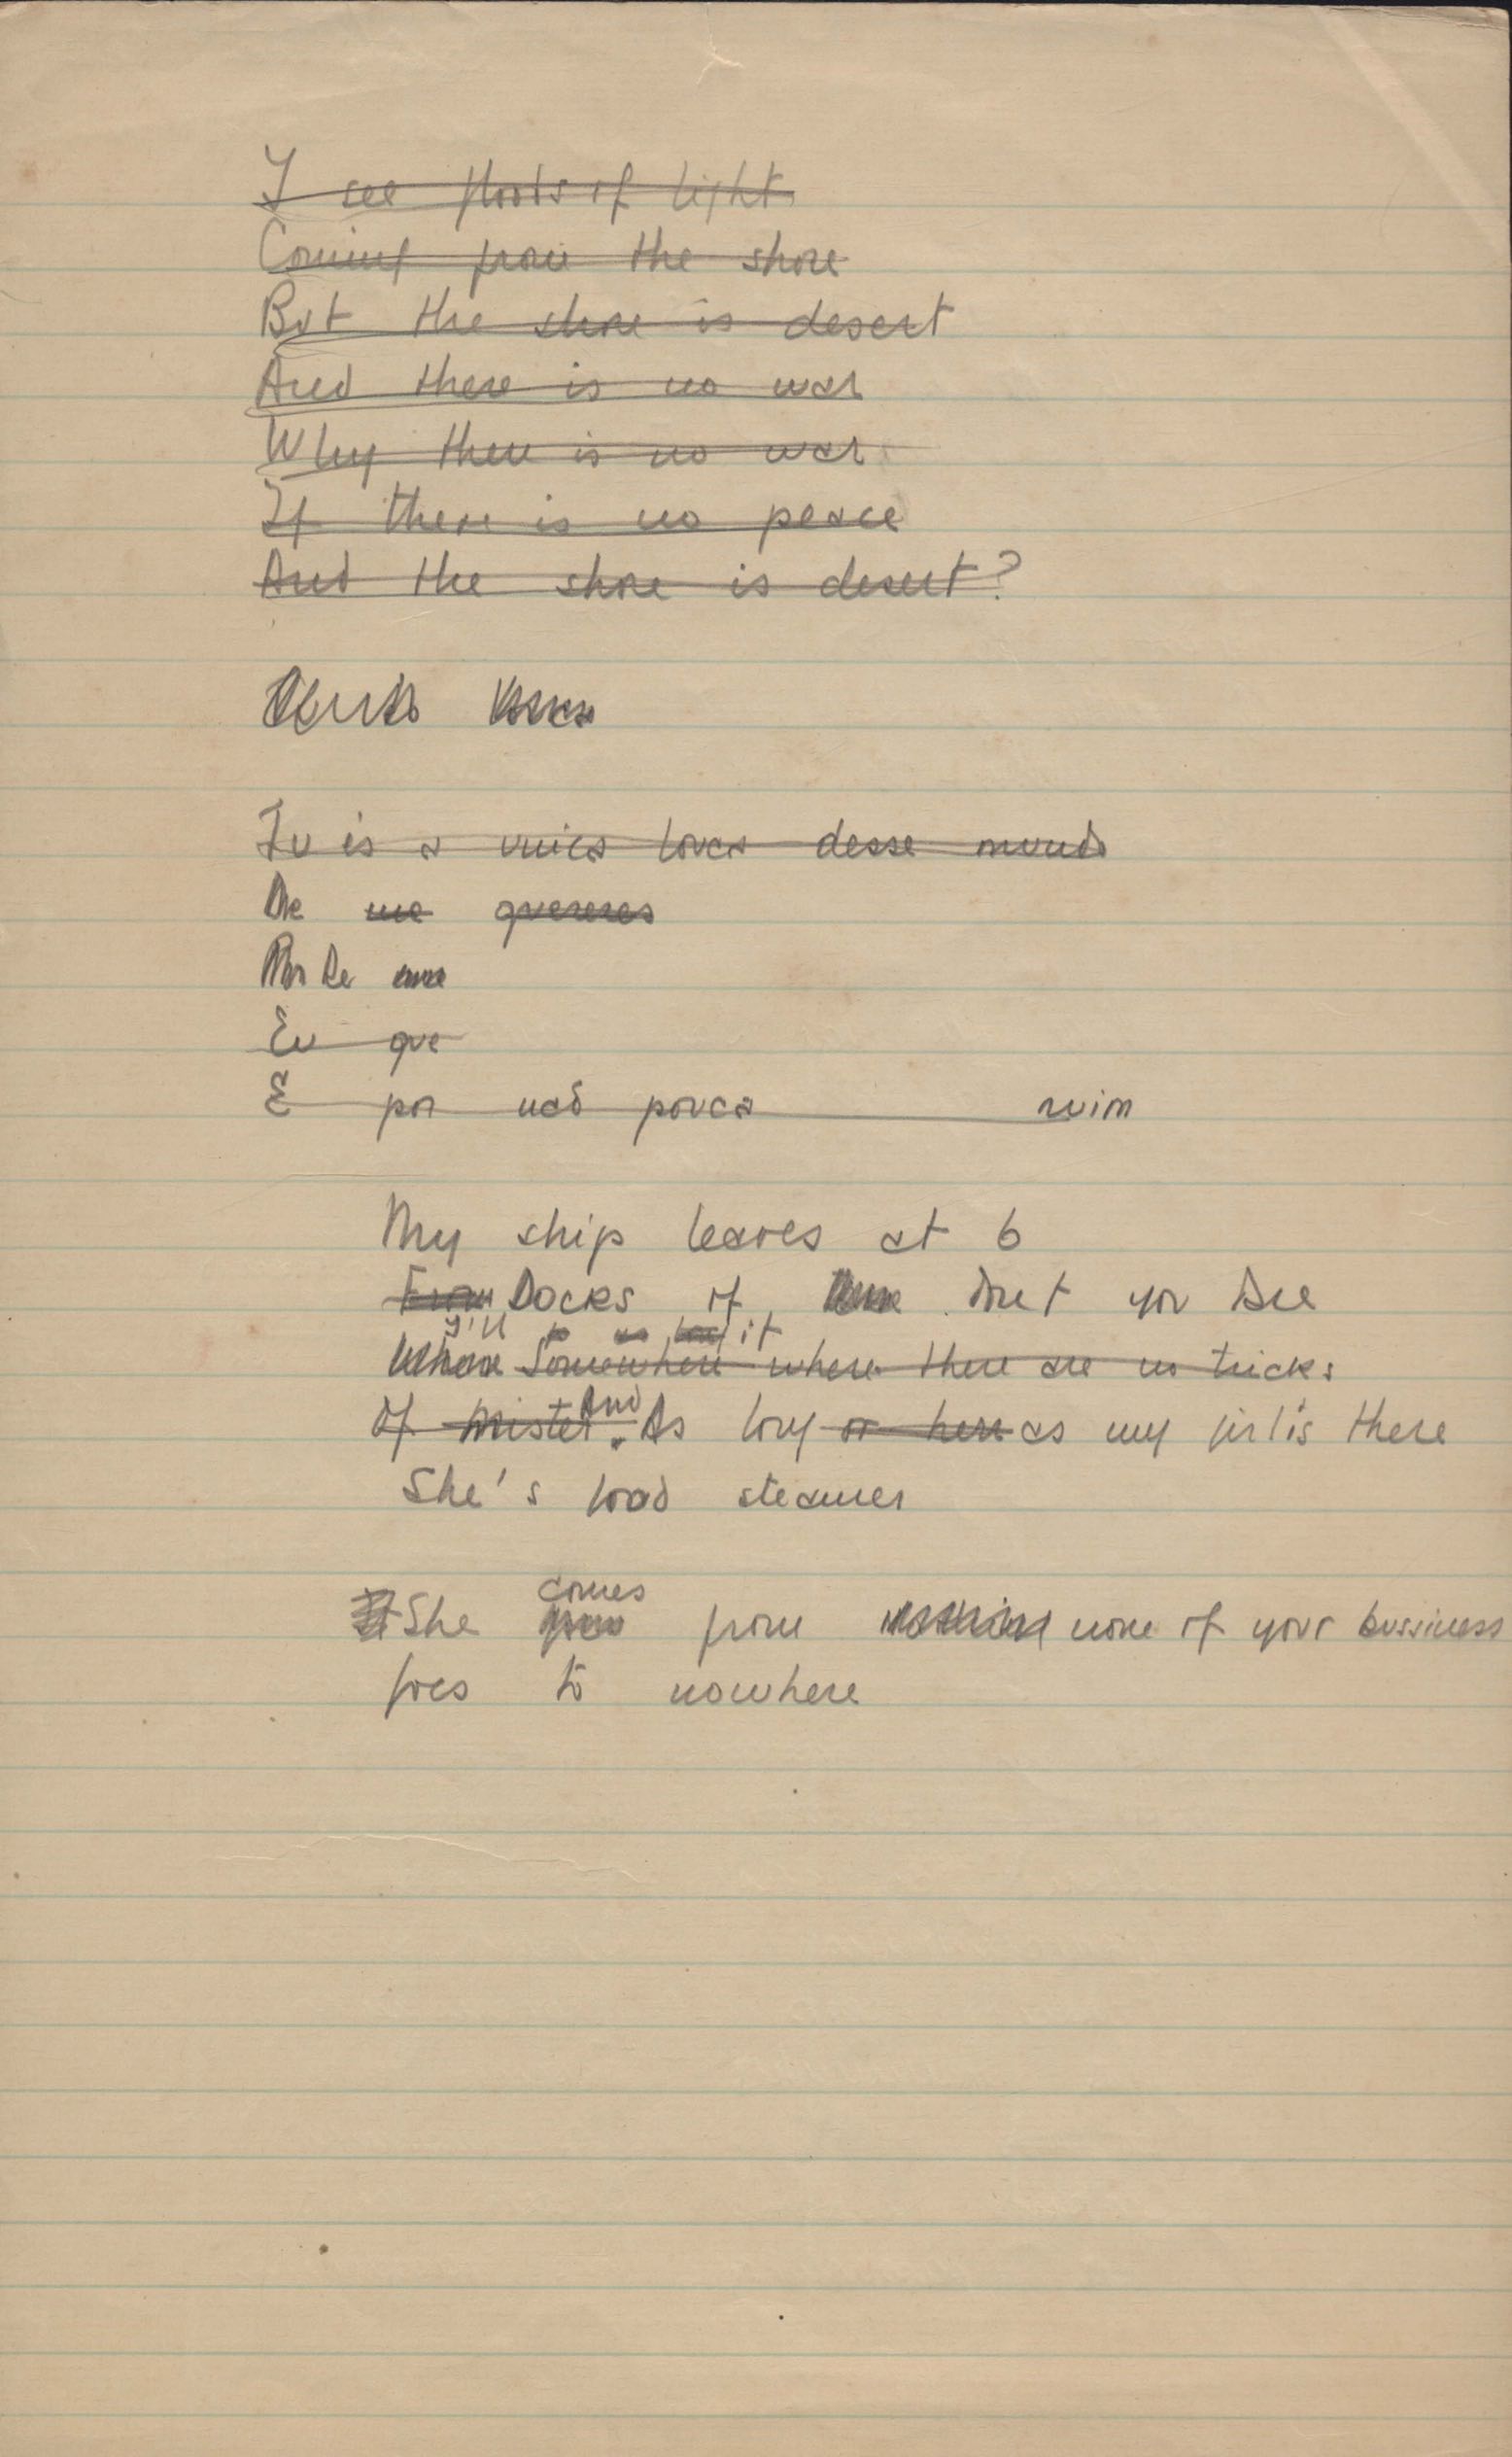 I see floods of light
Coming from the shore
But the shore is desert
And there is no war
Why there is no war
If there is no peace
And the shore is desert?
Tu és a unica louca desse mundo
De me quereres
Eu que
E por não pouca ruim
My ship leaves at 6
From Docks of Don't you see
I'll it
Where Somewhere where there are no tricks
Of Mister And As long or here as my girl's there
She's good steamer
comes
She from none of your bussiness
Goes to nowhere